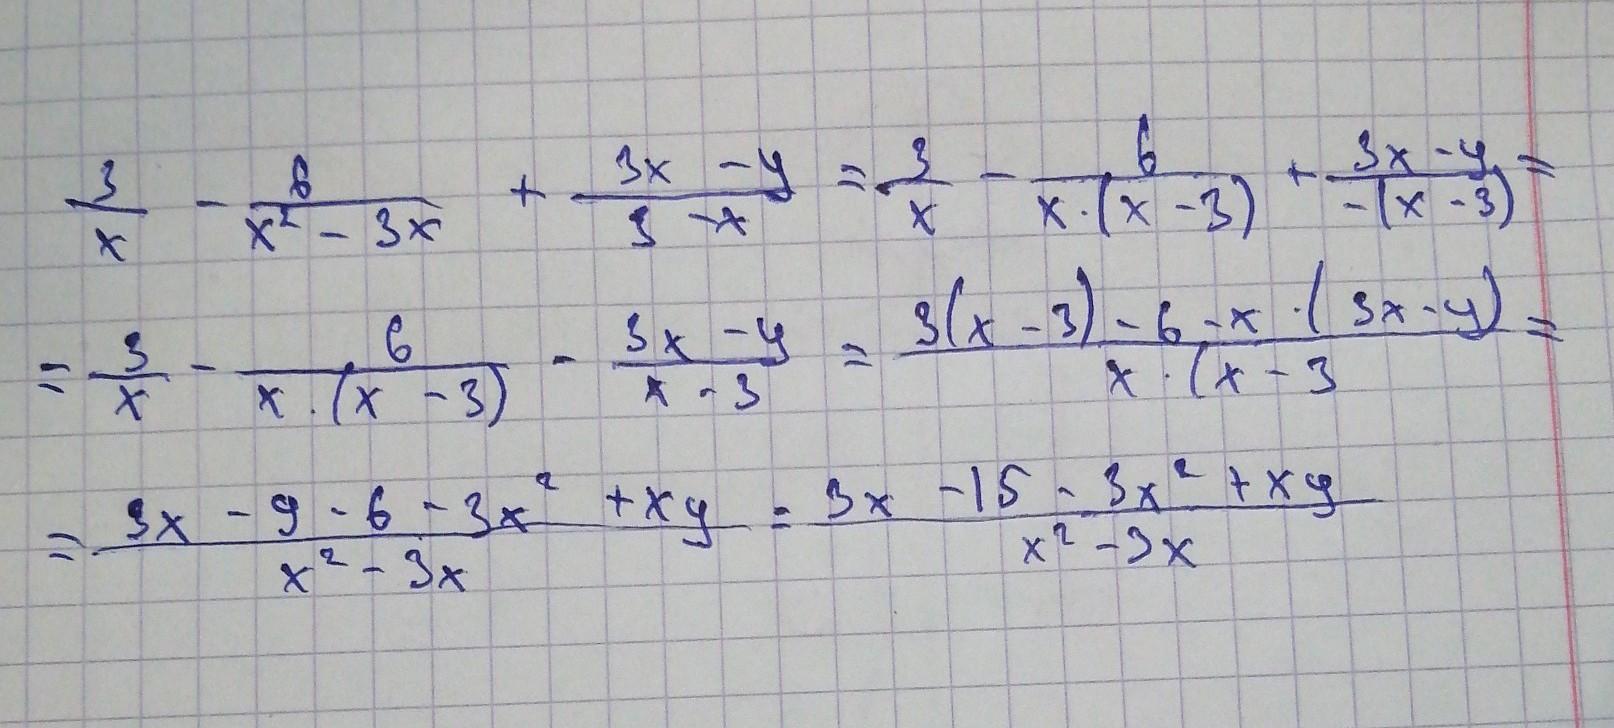 3/x - 6/(x² - 3x) + (3x - y)/(3 - x) = 3/x - 6/(x·(x - 3)) + (3x - y)/(-(x - 3)) =
= 3/x - 6/(x·(x - 3)) - (3x - y)/(x - 3) = (3(x - 3) - 6 - x·(3x - y))/(x·(x - 3) =
= (3x - 9 - 6 - 3x² + xy)/(x² - 3x) = (3x - 15 - 3x² + xy)/(x² - 3x)